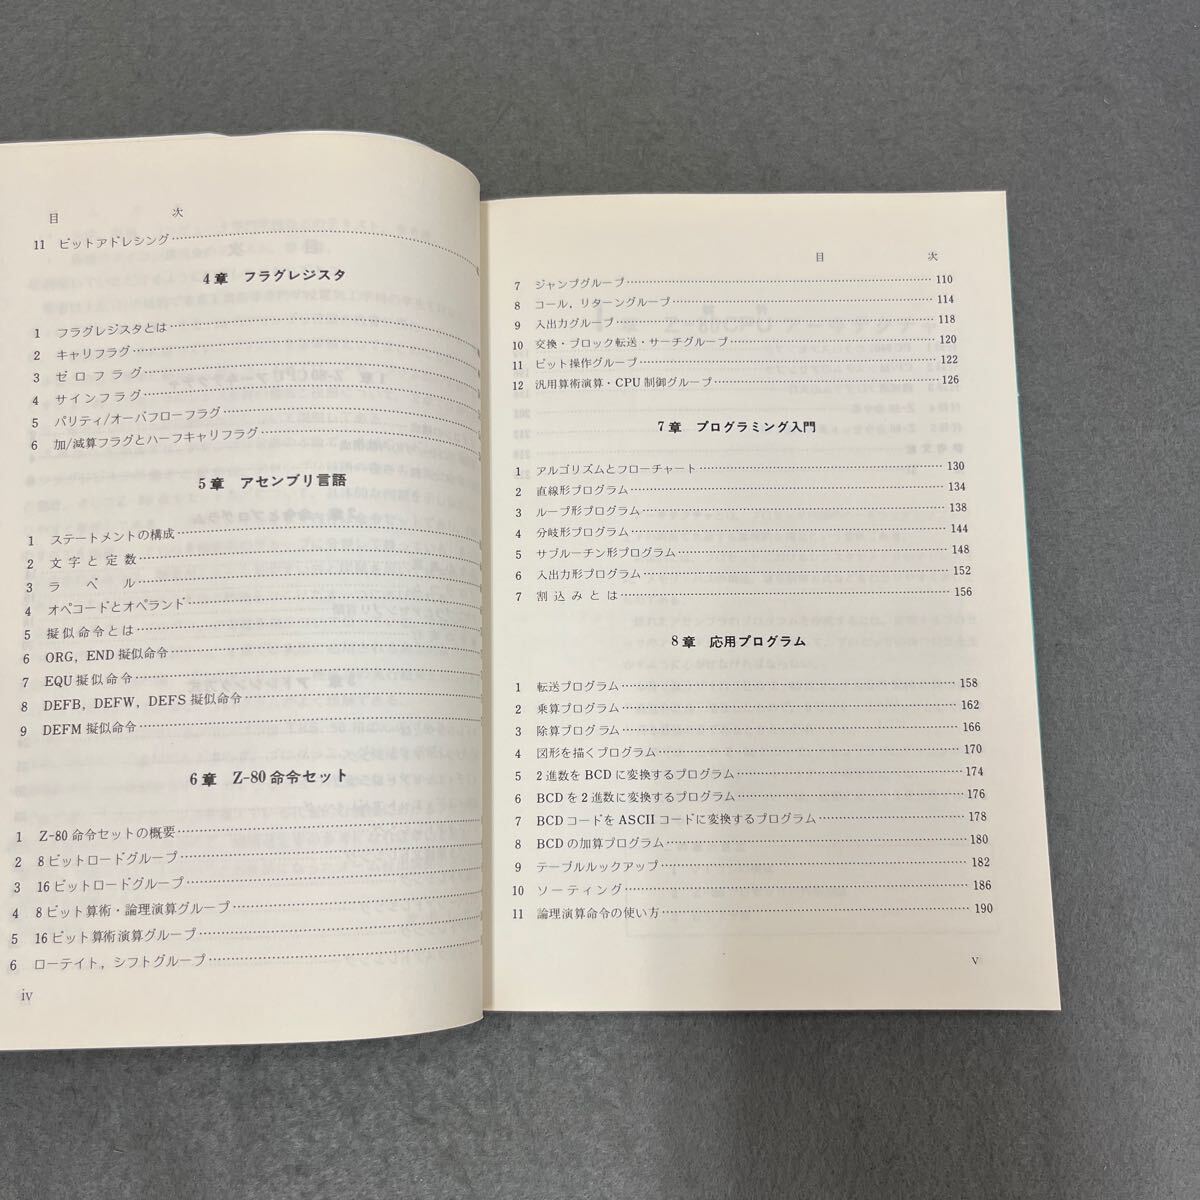 目 次
11 ビットアドレシング
4章 フラグレジスタ
1 フラグレジスタとは
2 キャリフラグ
3 ゼロフラグ
4 サインフラグ
5 パリティ/オーバフローフラグ
6 加/減算フラグとハーフキャリフラグ
5章 アセンブリ言語
1 ステートメントの構成
2 文字と定数
3 ラベル
4 オペコードとオペランド
5 擬似命令とは
6 ORG, END 擬似命令
7 EQU 擬似命令
8 DEFB, DEFW, DEFS 擬似命令
9 DEFM 擬似命令
6章 Z-80 命令セット
1 Z-80 命令セットの概要
2 8ビットロードグループ
3 16ビットロードグループ
4 8ビット算術・論理演算グループ
5 16ビット算術演算グループ
6 ローテイト,シフトグループ
iv
目 次
7 ジャンプグループ 110
8 コール,リターングループ 114
9 入出力グループ 118
10 交換・ブロック転送・サーチグループ 120
11 ビット操作グループ 122
12 汎用算術演算・CPU 制御グループ 126
7章 プログラミング入門
1 アルゴリズムとフローチャート 130
2 直線形プログラム 134
3 ループ形プログラム 138
4 分岐形プログラム 144
5 サブルーチン形プログラム 148
6 入出力形プログラム 152
7 割込みとは 156
8章 応用プログラム
1 転送プログラム 158
2 乗算プログラム 162
3 除算プログラム 166
4 図形を描くプログラム 170
5 2進数を BCD に変換するプログラム 174
6 BCD を2進数に変換するプログラム 176
7 BCD コードを ASCII コードに変換するプログラム 178
8 BCD の加算プログラム 180
9 テーブルルックアップ 182
10 ソーティング 186
11 論理演算命令の使い方 190
v